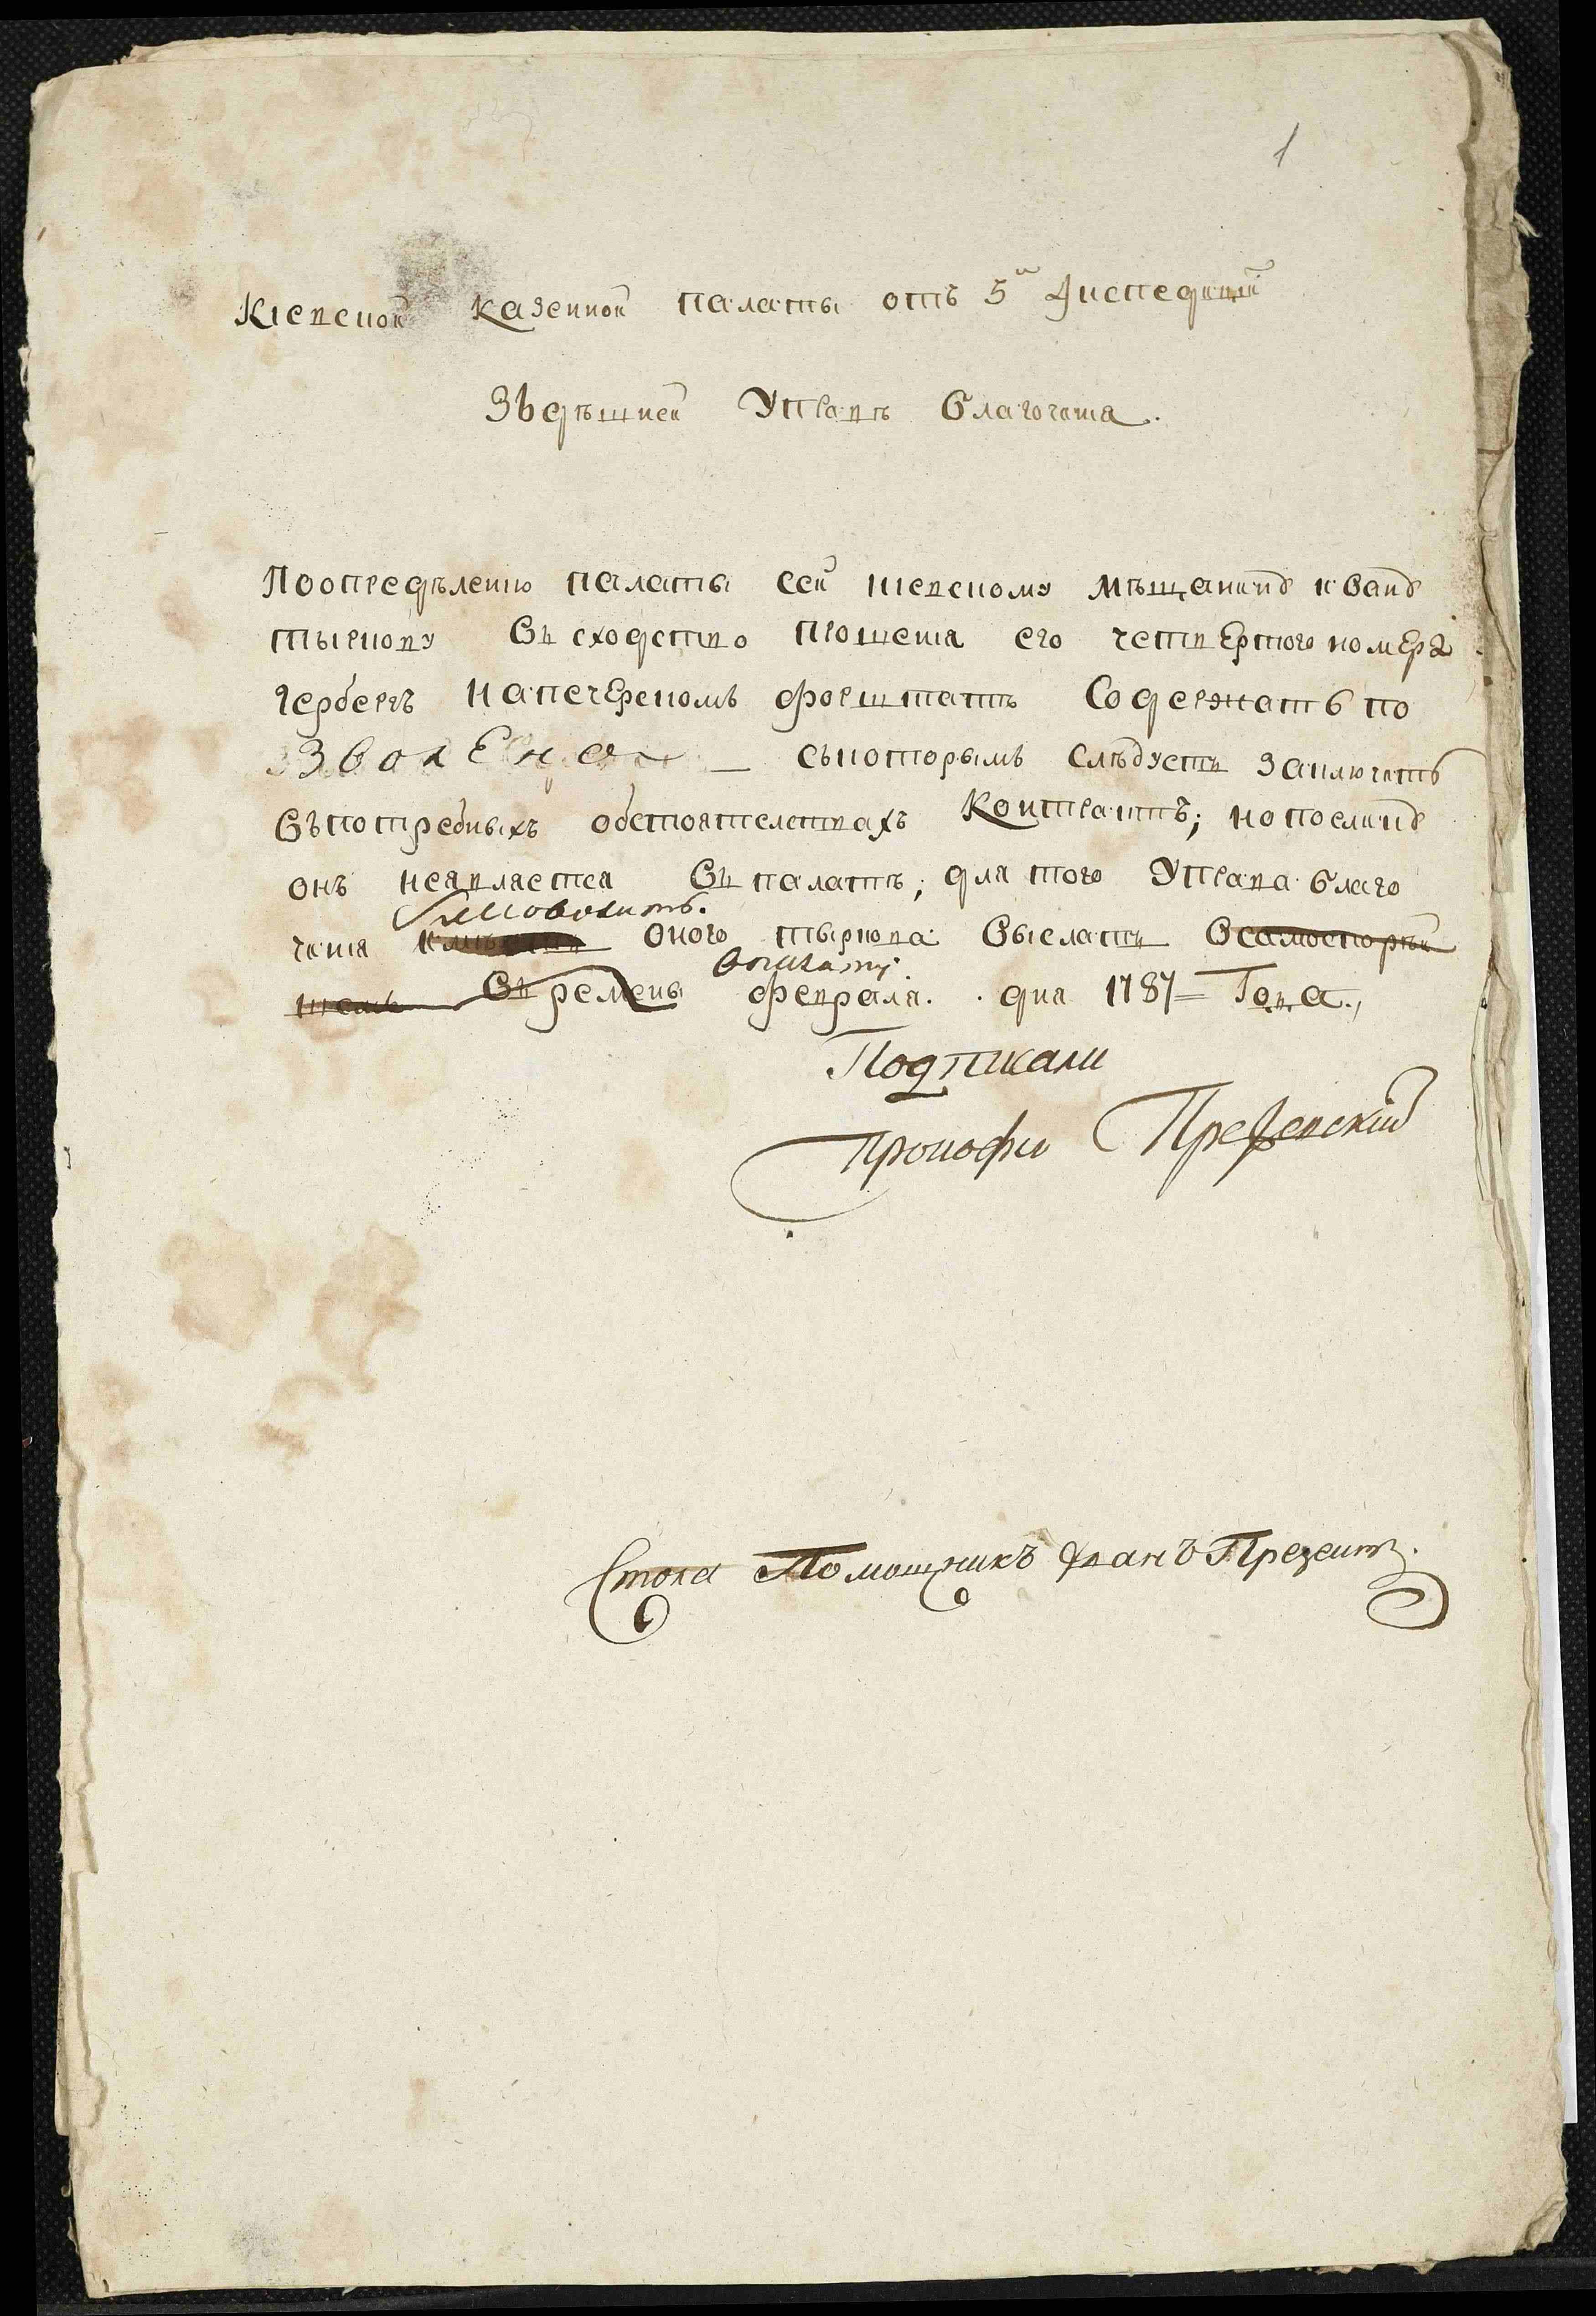 1
Кіевской казенной палаты отъ 5й Экспедицїи
Здѣшней Управѣ благочинія.
Поопредѣленію палаты сей киевскому мѣщанину Ивану
Тырнову въ сходство прошенія его четвертого номера
гербергъ напечерскомъ форштатѣ Содержать по
зволено — скоторымъ слѣдуетъ заключить
въпотребныхъ обстоятелствахъ контрактъ; нопоелику
онъ неявляется въ палатѣ; для того Управа благо
чинія
благоволитъ.
оного тырнова выслать
в палату
февраля. . дня 1787 = Года.,
Подписали
Прокофи
Стола Помощникъ Иванъ